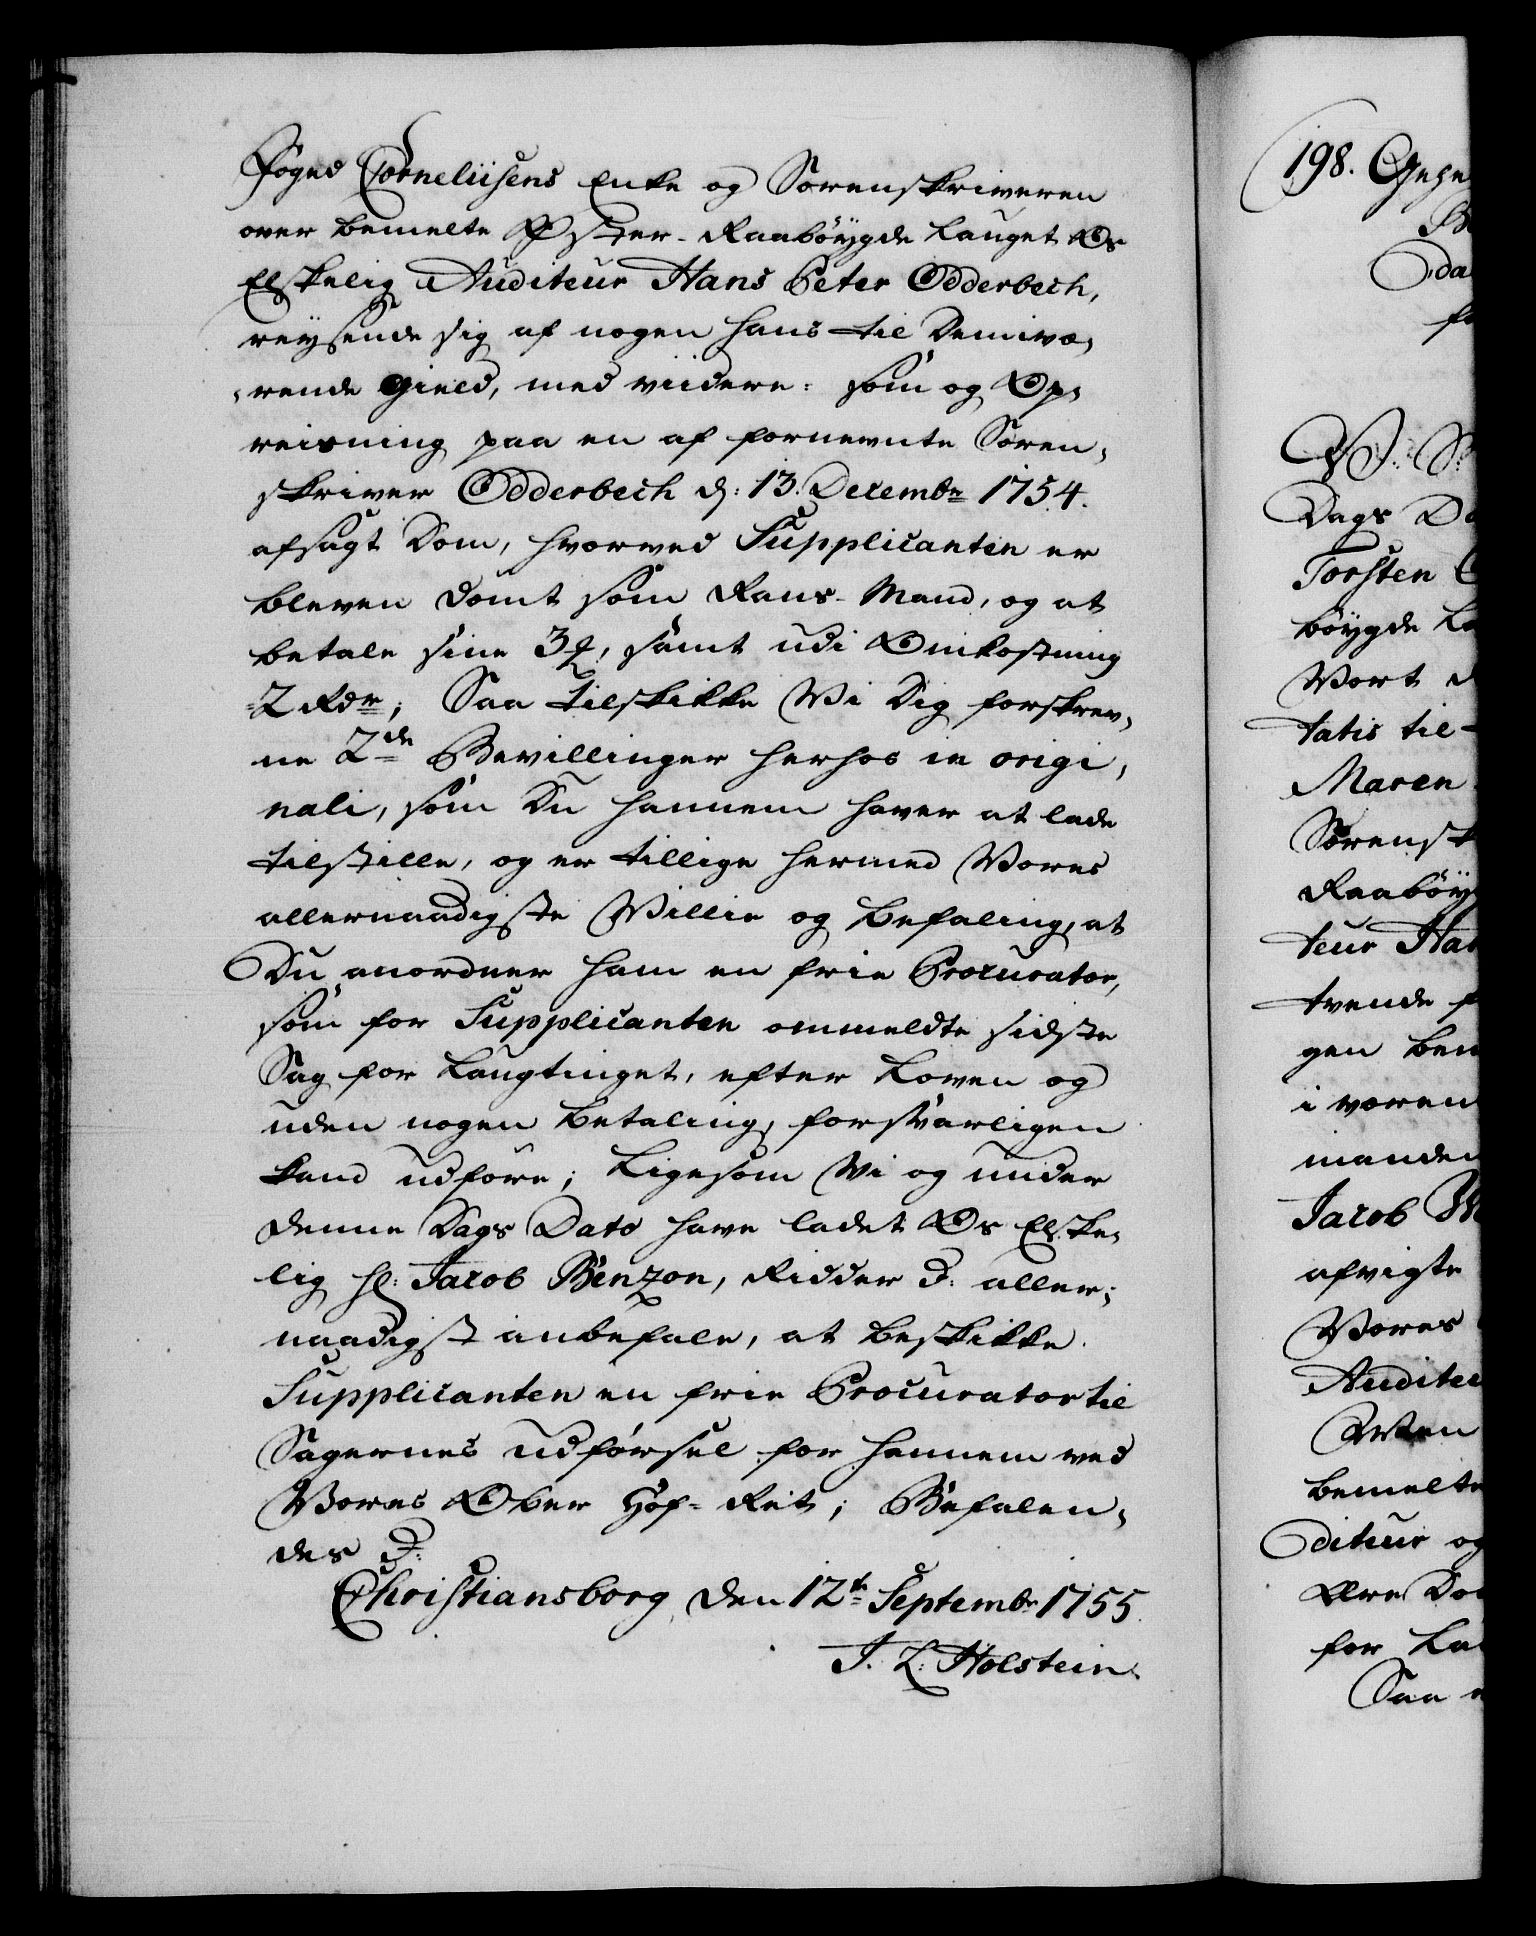 Foged Corneliisens Enke og Sorenskriveren
over bemelte Øster-Raabøygde Lauget Os
Elskelig Auditeur Hans Peter Odderbech,
reysende sig af nogen hans til Dem væ,
,rende Gield, med viidere: som og Op,
reisning paa en af fornevnte Soren,
skriver Odderbech d: 13. Decembr 1754.
afsagt Dom, hvorved Supplicanten er
bleven dømt som Rans-Mand, og at
betale sine 3 , samt udi Omkostning
2 Rdr; Saa tilskikke Vi Dig forskrev,
ne 2de Bevillinger herhos in origi,
nali, som Du hannem haver at lade
tilstille, og er tillige hermed Vores
allernaadigste Villie og Befaling, at
Du anordner ham en frie Procurator,
som for Supplicanten ommeldte sidste
Sag for Laugtinget, efter Loven og
uden nogen Betaling, forsvarligen
kand udføre; Ligesom Vi og under
denne Dags Dato have ladet Os Elske,
lig Hl: Jacob Benzon, Ridder : aller,
naadigst anbefale, at beskikke
Supplicanten en frie Procurator til
Sagernes udførsel for hannem ved
Vores Ober Hof-Ret; Befalen,
des :
Christiansborg den 12te Septembr 1755.
J. L: Holstein.
198.
Oda
Dags Da
Torsten
bøygde La
Vort
tatis til-
Maren
Sorensk
Raabøy
teur Han
tvende f
gen bem
i væren
manden
Jacob
afvigte
Vores
Auditeu
bemelte
diteur og
for La
Saa